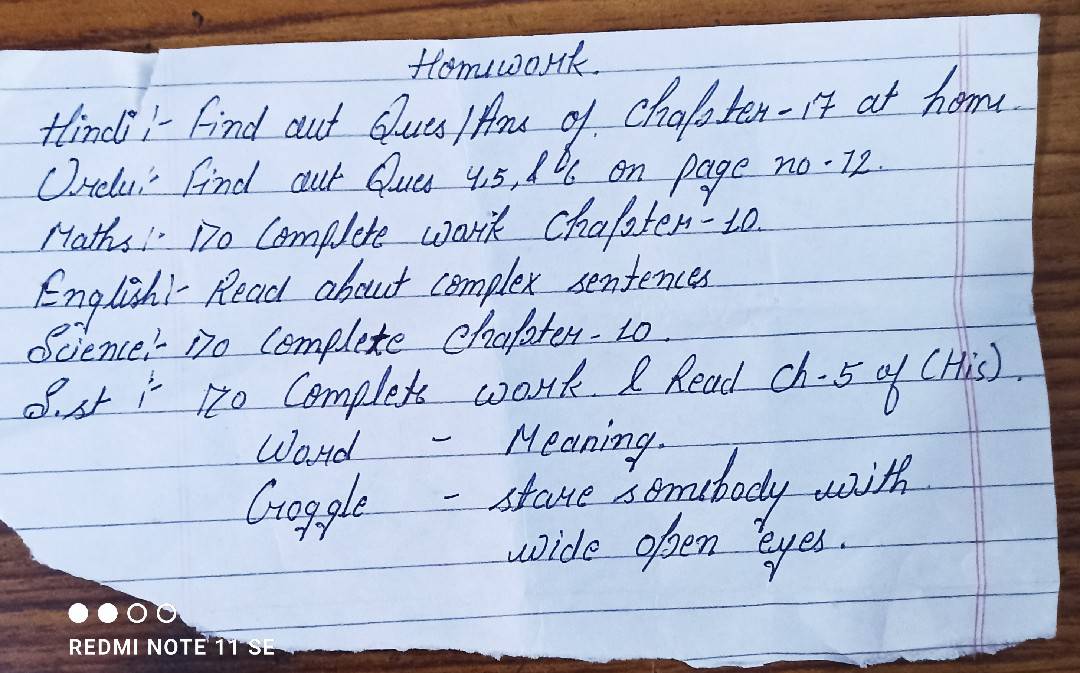 Homework.
Hindi :- Find out Ques/Ans of. Chapter-17 at home.
Urdu :- Find out Ques 4,5, & 6 on page no-12.
Maths :- Do Complete work Chapter-10.
English :- Read about complex sentences
Science :- Do Complete Chapter-10.
S.st :- Do Complete work. & Read Ch-5 of (His).
Word - Meaning.
Goggle - stare somebody with
wide open eyes.
REDMI NOTE 11 SE